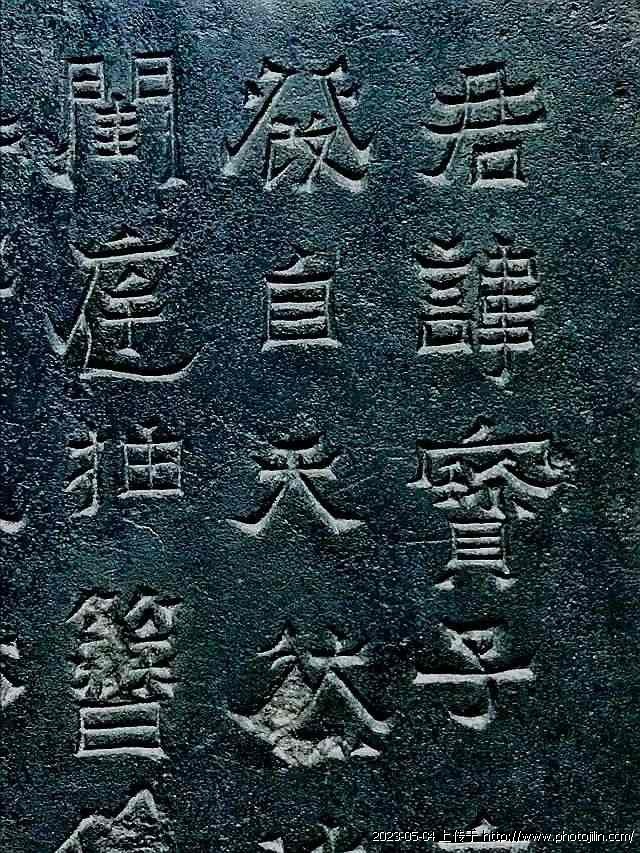 君諱寶子
發自天然
閨庭抽簪
2023-05-04 上传于 http://www.photojilin.com/